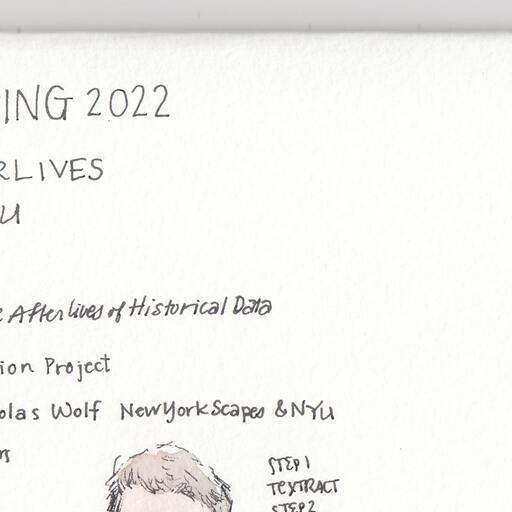 ING 2022
RLIVES
U
e Afterlives of Historical Data
ion Project
olas Wolf NewYorkScapes & NYU
rs
STEP 1
TEXTRACT
STEP 2